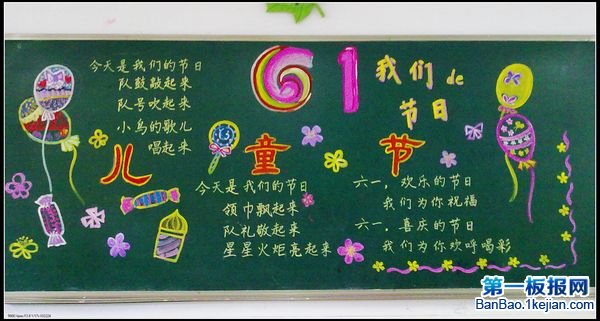 今天是我们的节日
队鼓敲起来
队号吹起来
小鸟的歌儿
唱起来
61
我们de
节日
儿童节
今天是我们的节日
领巾飘起来
队礼敬起来
星星火炬亮起来
六一，欢乐的节日
我们为你祝福
六一，喜庆的节日
我们为你欢呼喝彩
第一板报网
BanBao.1kejian.com